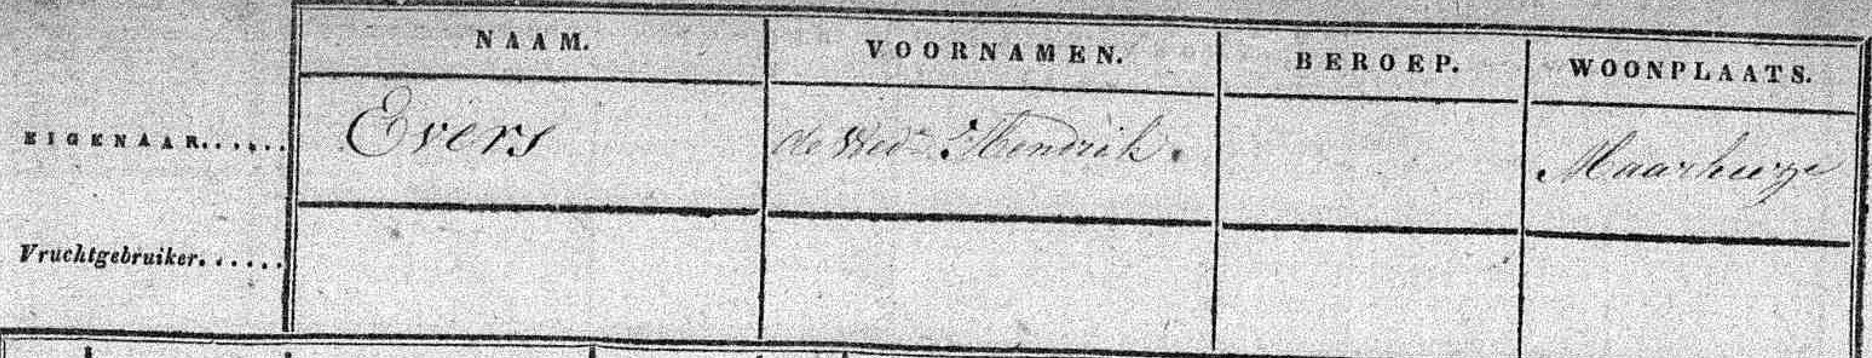 NAAM. VOORNAMEN. BEROEP. WOONPLAATS.
EIGENAAR...... Evers de Wed. Hendrik. Maarheeze
Vruchtgebruiker......